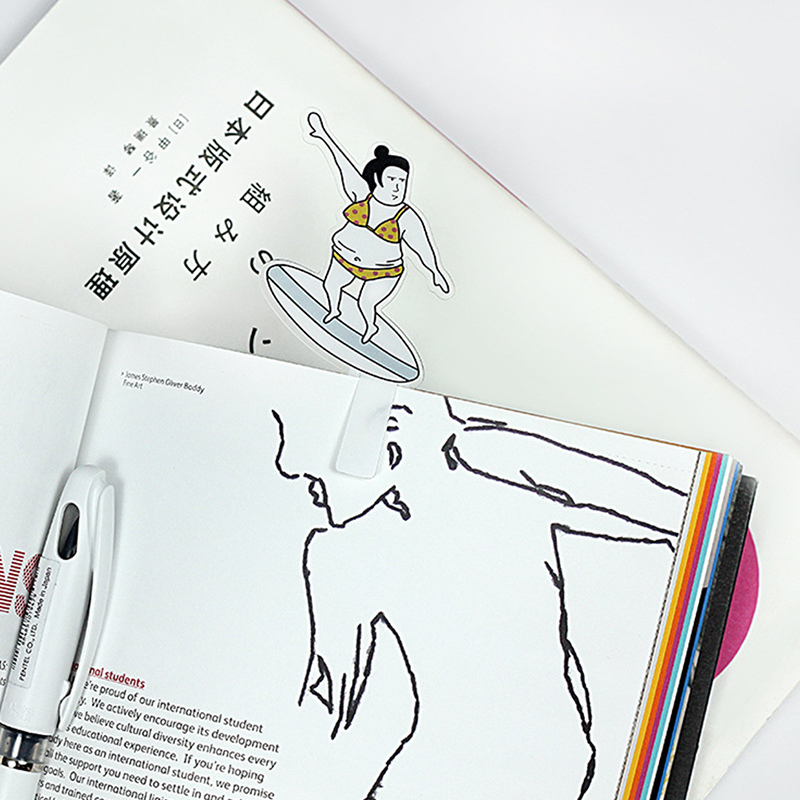 日本版式设计原理
組み方
の
[日]甲谷一 著
James Stephen Oliver Boddy
Fine Art
NS
PENTEL CO., LTD. Made in Japan
nal students
e're proud of our international student
y. We actively encourage its development
ve believe cultural diversity enhances every
educational experience. If you're hoping
dy here as an international student, we promise
all the support you need to settle in and
goals. Our international
s and trained